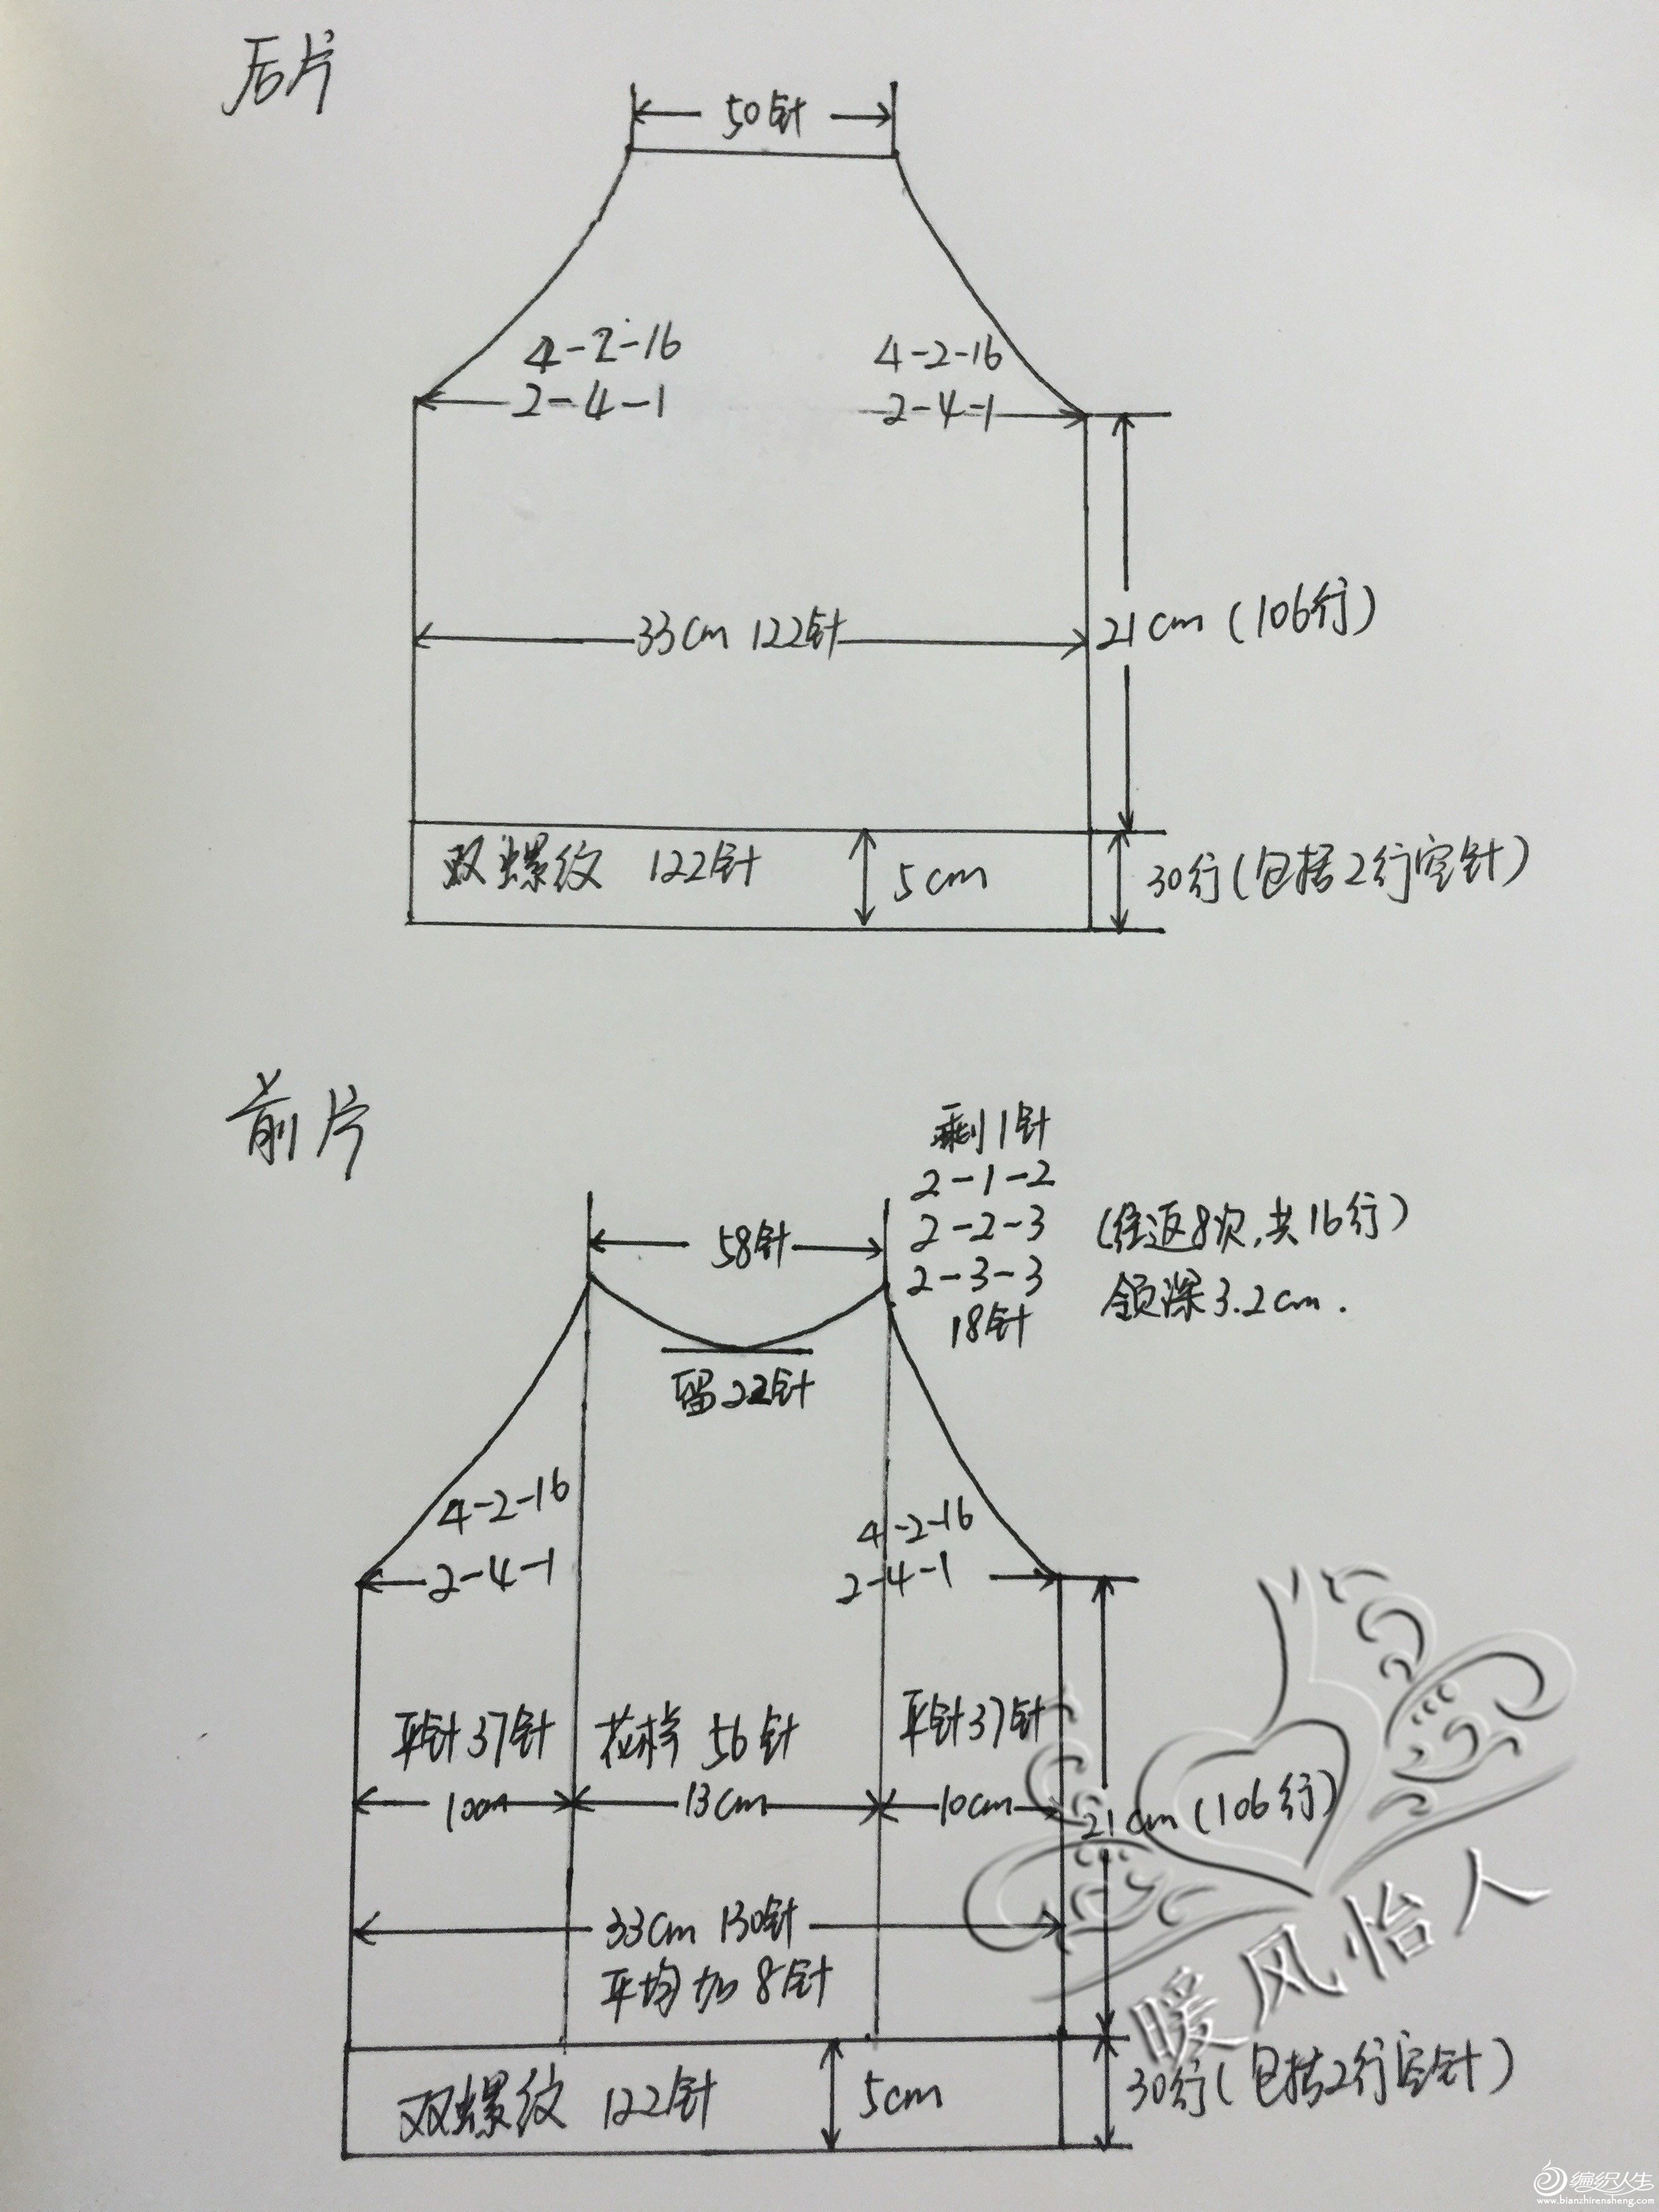 后片
50针
4-2-16
2-4-1
4-2-16
2-4-1
33cm 122针
21cm(106行)
双螺纹 122针
5cm
30行(包括2行空针)
前片
剩1针
2-1-2
2-2-3
2-3-3
18针
(往返8次,共16行)
领深3.2cm.
58针
留22针
4-2-16
2-4-1
4-2-16
2-4-1
平针37针
花样 56针
平针37针
10cm
13cm
10cm
21cm(106行)
33cm 130针
平均加8针
双螺纹 122针
5cm
30行(包括2行空针)
暖风怡人
编织人生
www.bianzhirensheng.com